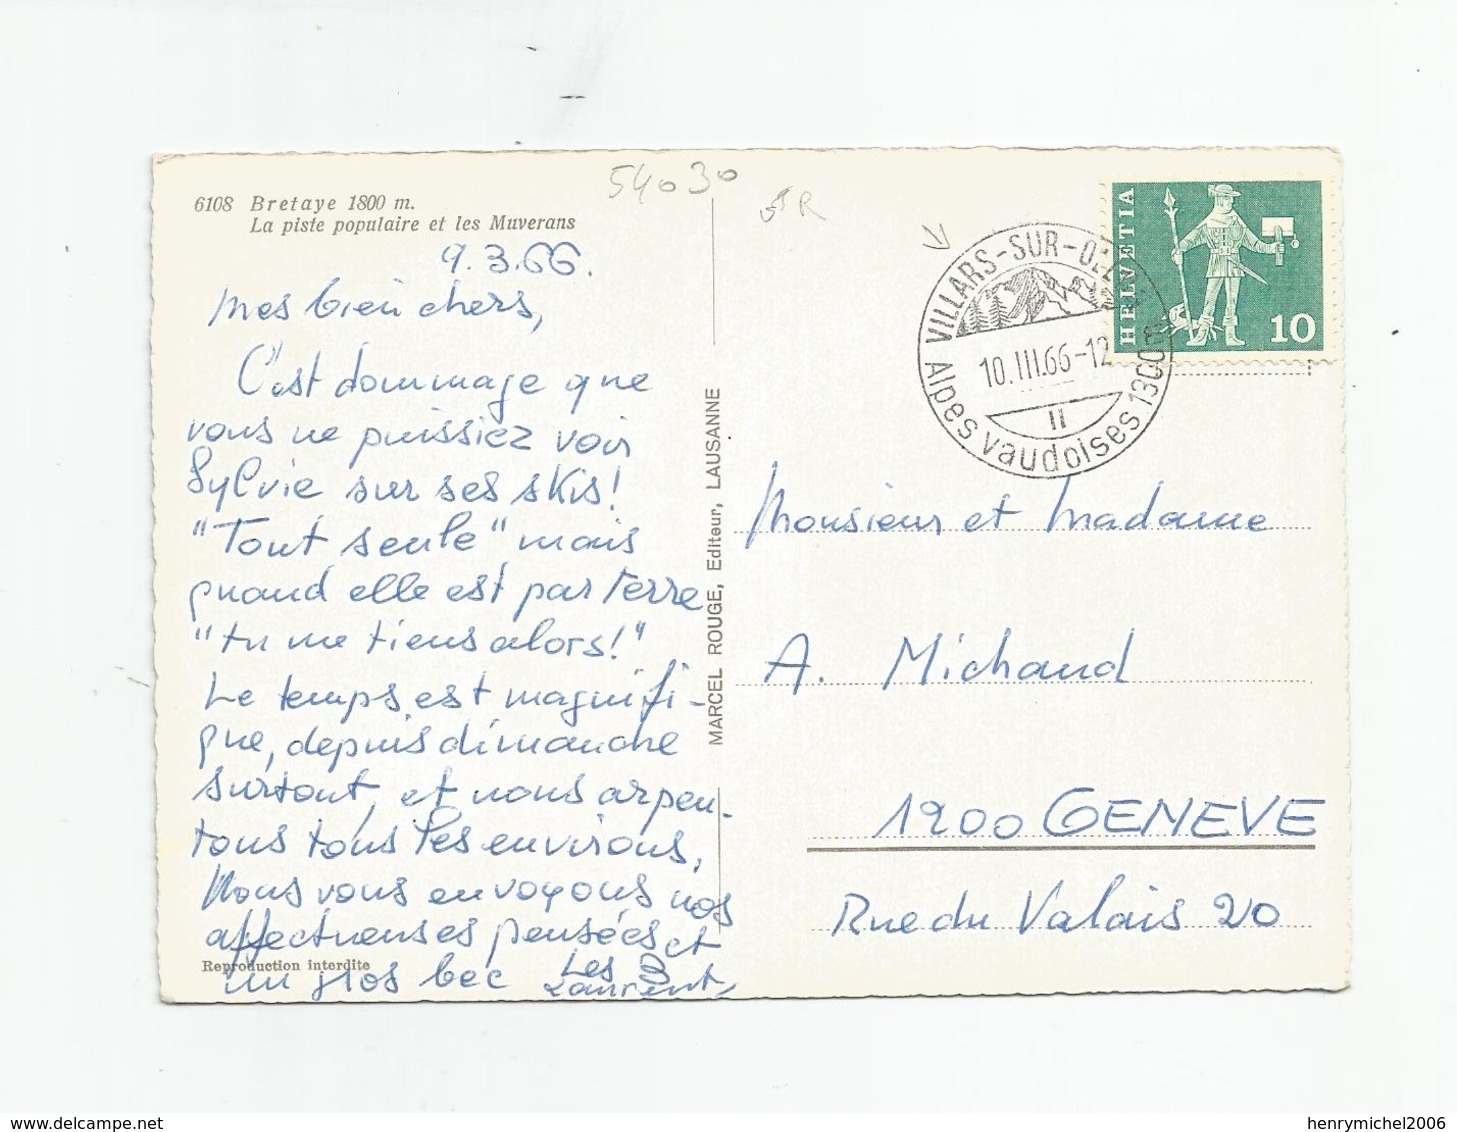 54030
SR
6108 Bretaye 1800 m.
La piste populaire et les Muverans
9.3.66.
Mes bien chers,
C'est dommage que
vous ne puissiez voir
Sylvie sur ses skis!
"Tout seule" mais
quand elle est par terre
"tu me tiens alors!"
Le temps est magnifi-
que, depuis dimanche
surtout, et nous arpen-
tons tous les environs.
Nous vous envoyons nos
affectueuses pensées et
un gros bec Les 3
Laurent
Reproduction interdite
MARCEL ROUGE, Editeur, LAUSANNE
VILLARS-SUR-OLL
10.III.66-12
II
Alpes vaudoises 1300m
HELVETIA
10
Monsieur et Madame
A. Michaud
1200 GENEVE
Rue du Valais 20
www.delcampe.net
henrymichel2006